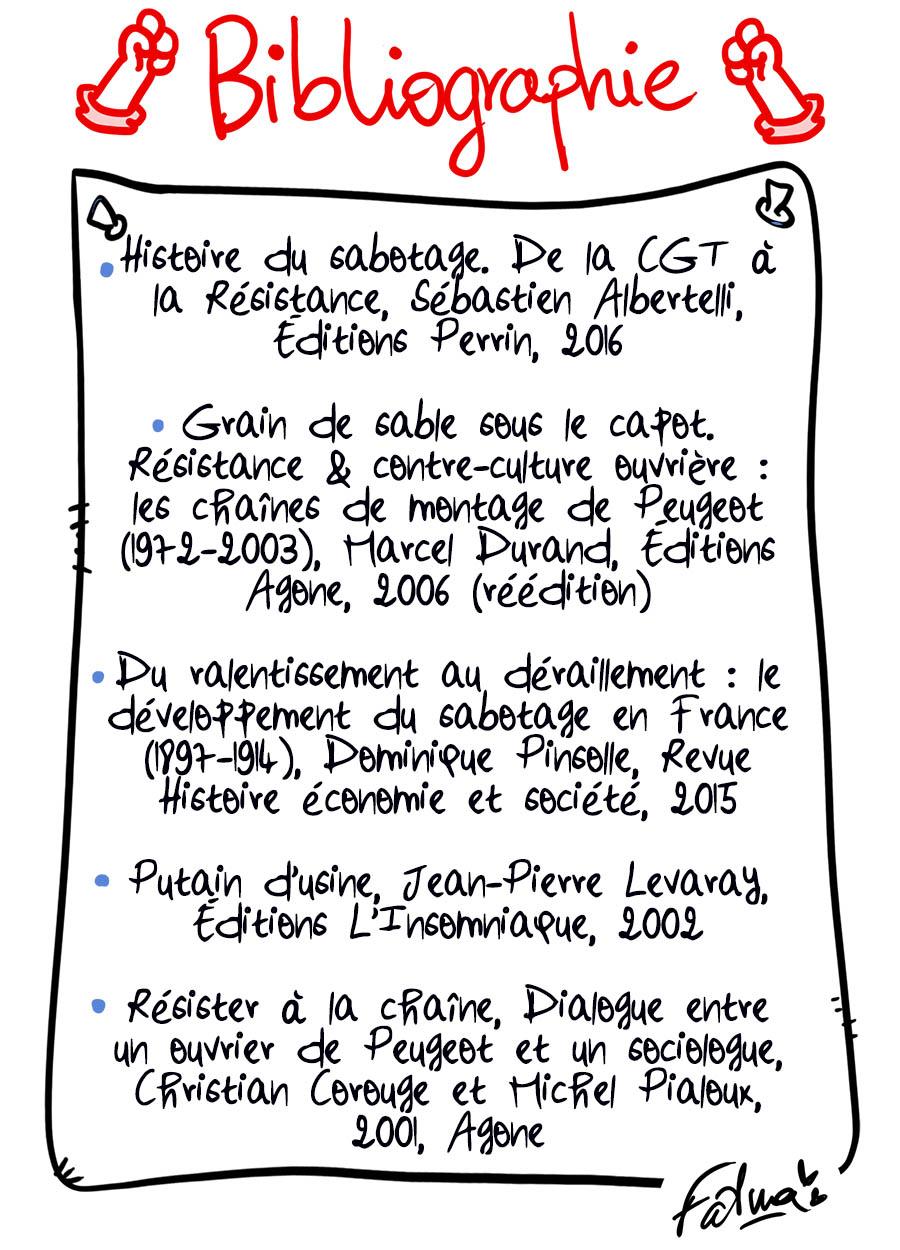 Bibliographie
• Histoire du sabotage. De la CGT à
la Résistance, Sébastien Albertelli,
Éditions Perrin, 2016
• Grain de sable sous le capot.
Résistance & contre-culture ouvrière :
les chaînes de montage de Peugeot
(1972-2003), Marcel Durand, Éditions
Agone, 2006 (réédition)
• Du ralentissement au déraillement : le
développement du sabotage en France
(1897-1914), Dominique Pinsolle, Revue
Histoire économie et société, 2015
• Putain d'usine, Jean-Pierre Levaray,
Éditions L'Insomniaque, 2002
• Résister à la chaîne, Dialogue entre
un ouvrier de Peugeot et un sociologue,
Christian Corouge et Michel Pialoux,
2001, Agone